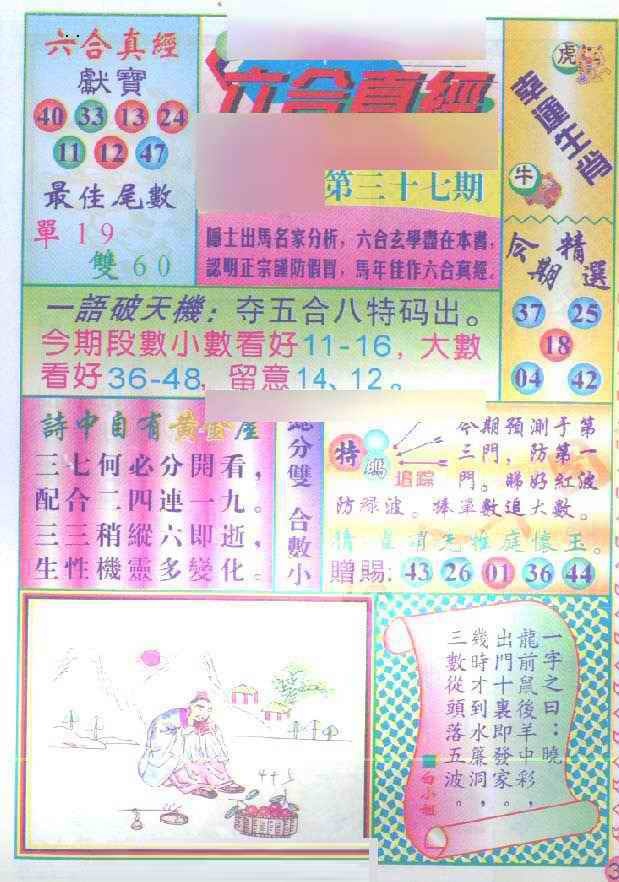 六合真經
獻寶
40 33 13 24
11 12 47
最佳尾數
單 1 9
雙 6 0
六合真經
第三十七期
隱士出馬名家分析，六合玄學盡在本書，
認明正宗謹防假冒，馬年佳作六合真經。
虎
幸運生肖
牛
今期精選
37 25
18
04 42
一語破天機：夺五合八特码出。
今期段數小數看好11-16，大數
看好36-48，留意14、12。
詩中自有黃金屋
三七何必分開看，
配合二四連一九。
三三稍縱六即逝，
生性機靈多變化。
總分雙 合數小
特碼
追踪
今期預測于第
三門，防第一
門。睇好紅波
防綠波。捧單數追大數。
贈賜: 43 26 01 36 44
4+5
一字之曰：曉
龍前鼠後羊中彩，
出門十裏即發家。
幾時才到水簾洞，
三數從頭落五波。
白小姐
3